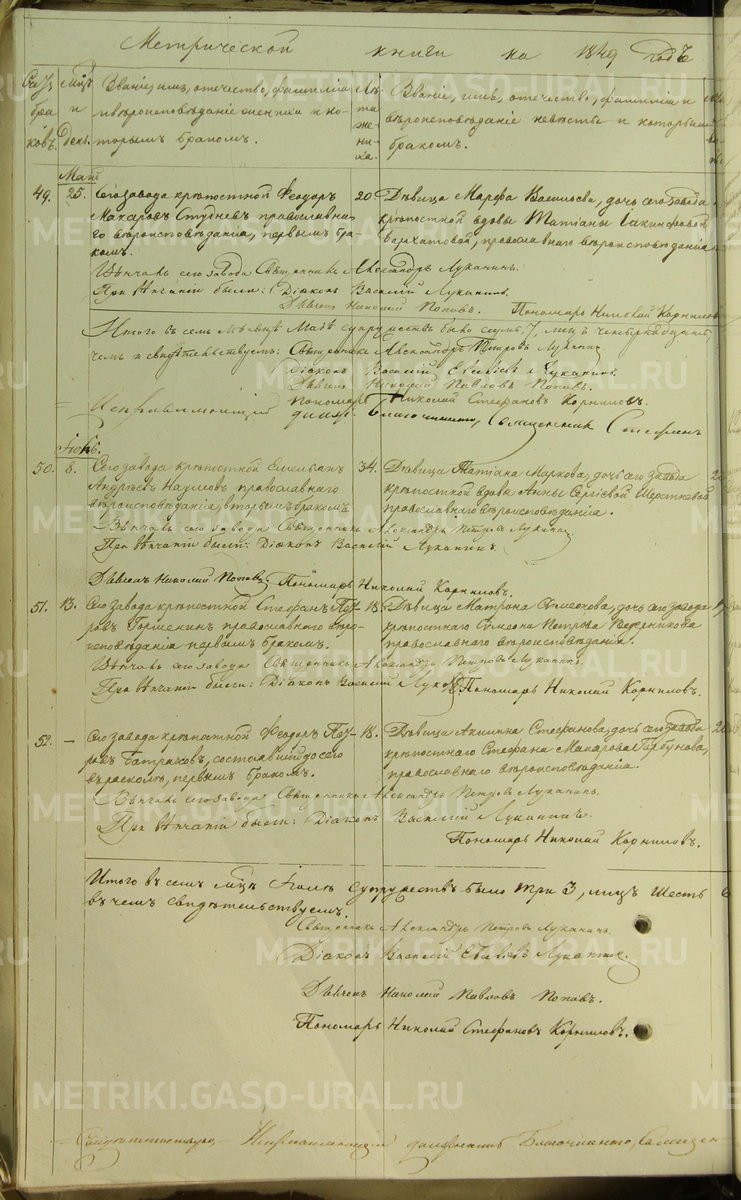 Метрической книги на 1849 годъ
Счетъ браковъ.
Мѣс. и день.
Званіе, имя, отечество, фамилія и вѣроисповѣданіе жениха и которымъ бракомъ.
Лѣта жениха.
Званіе, имя, отечество, фамилія и вѣроисповѣданіе невѣсты и которымъ бракомъ.
Май
49. 25. Сего завода крѣпостной Ѳеодоръ
Макаровъ Студневъ православна
го вѣроисповѣданія, первымъ бра
комъ.
20
Дѣвица Марѳа Васильева, дочь сего завода
крѣпостной вдовы Татіаны Іакинѳовой
Бархатовой, православнаго вѣроисповѣданія
Вѣнчалъ сего завода Священникъ Александръ Луканинъ.
При вѣнчаніи были: Діаконъ Василій Луканинъ.
Дьячекъ Николай Поповъ. Пономарь Николай Корниловъ
Итого въ семъ мѣсяцѣ Маіѣ супружествъ было семь, 7, лицъ четырнадцать
чемъ и свидѣтельствуемъ: Священникъ Александръ Петровъ Луканинъ
Діаконъ Василій Луканинъ.
Дьячекъ Николай Павловъ Поповъ.
Пономарь Николай Стефановъ Корниловъ.
Исправляющій должн. Благочиннаго, Священникъ Стефанъ
Іюнь.
50. 8. Сего завода крѣпостной Емельянъ
Андреевъ Наумовъ православнаго
вѣроисповѣданія, вторымъ бракомъ.
34.
Дѣвица Татіана Маркова, дочь сего завода
крѣпостной вдовы Анны Сергіевой Шерстневой
православнаго вѣроисповѣданія.
Вѣнчалъ сего завода Священникъ Александръ Петровъ Луканинъ
При вѣнчаніи были: Діаконъ Василій Луканинъ.
Дьячекъ Николай Поповъ Пономарь Николай Корниловъ.
51. 13. Сего завода крѣпостной Стефанъ Пет
ровъ православнаго вѣро
исповѣданія первымъ бракомъ.
18.
Дѣвица Матрона Симеонова, дочь сего завода
крѣпостнаго Симеона Петрова
православнаго вѣроисповѣданія.
Вѣнчалъ сего завода Священникъ Александръ Петровъ Луканинъ.
При вѣнчаніи были: Діаконъ Василій Луканинъ Пономарь Николай Корниловъ.
52. — Сего завода крѣпостной Ѳеодоръ Пет
ровъ Батраковъ, состоявшій до сего
въ расколѣ, первымъ бракомъ.
18.
Дѣвица Акилина Стефанова, дочь сего завода
крѣпостнаго Стефана Макарова Горбунова,
православнаго вѣроисповѣданія.
Вѣнчалъ сего завода Священникъ Александръ Петровъ Луканинъ.
При вѣнчаніи были: Діаконъ Василій Луканинъ.
Пономарь Николай Корниловъ.
Итого въ семъ мѣс. Іюнѣ супружествъ было три 3, лицъ шесть 6
въ чемъ свидѣтельствуемъ.
Священникъ Александръ Петровъ Луканинъ.
Діаконъ Василій Луканинъ.
Дьячекъ Николай Павловъ Поповъ.
Пономарь Николай Стефановъ Корниловъ.
Свидѣтельствую, Исправляющій должность Благочиннаго, Священ
METRIKI.GASO-URAL.RU